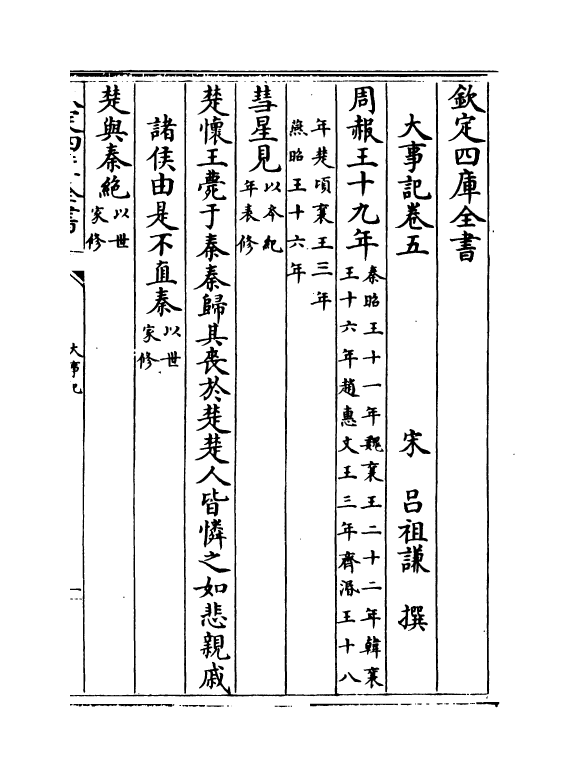 欽定四庫全書
大事記卷五 宋 呂祖謙 撰
周赧王十九年
秦昭王十一年魏襄王二十二年韓襄
王十六年趙惠文王三年齊湣王十八
年楚頃襄王三年
燕昭王十六年
彗星見
以夲紀
年表修
楚懷王薨于秦秦歸其喪於楚楚人皆憐之如悲親戚
諸侯由是不直秦
以世
家修
楚與秦絶
以世
家修
大事記
一